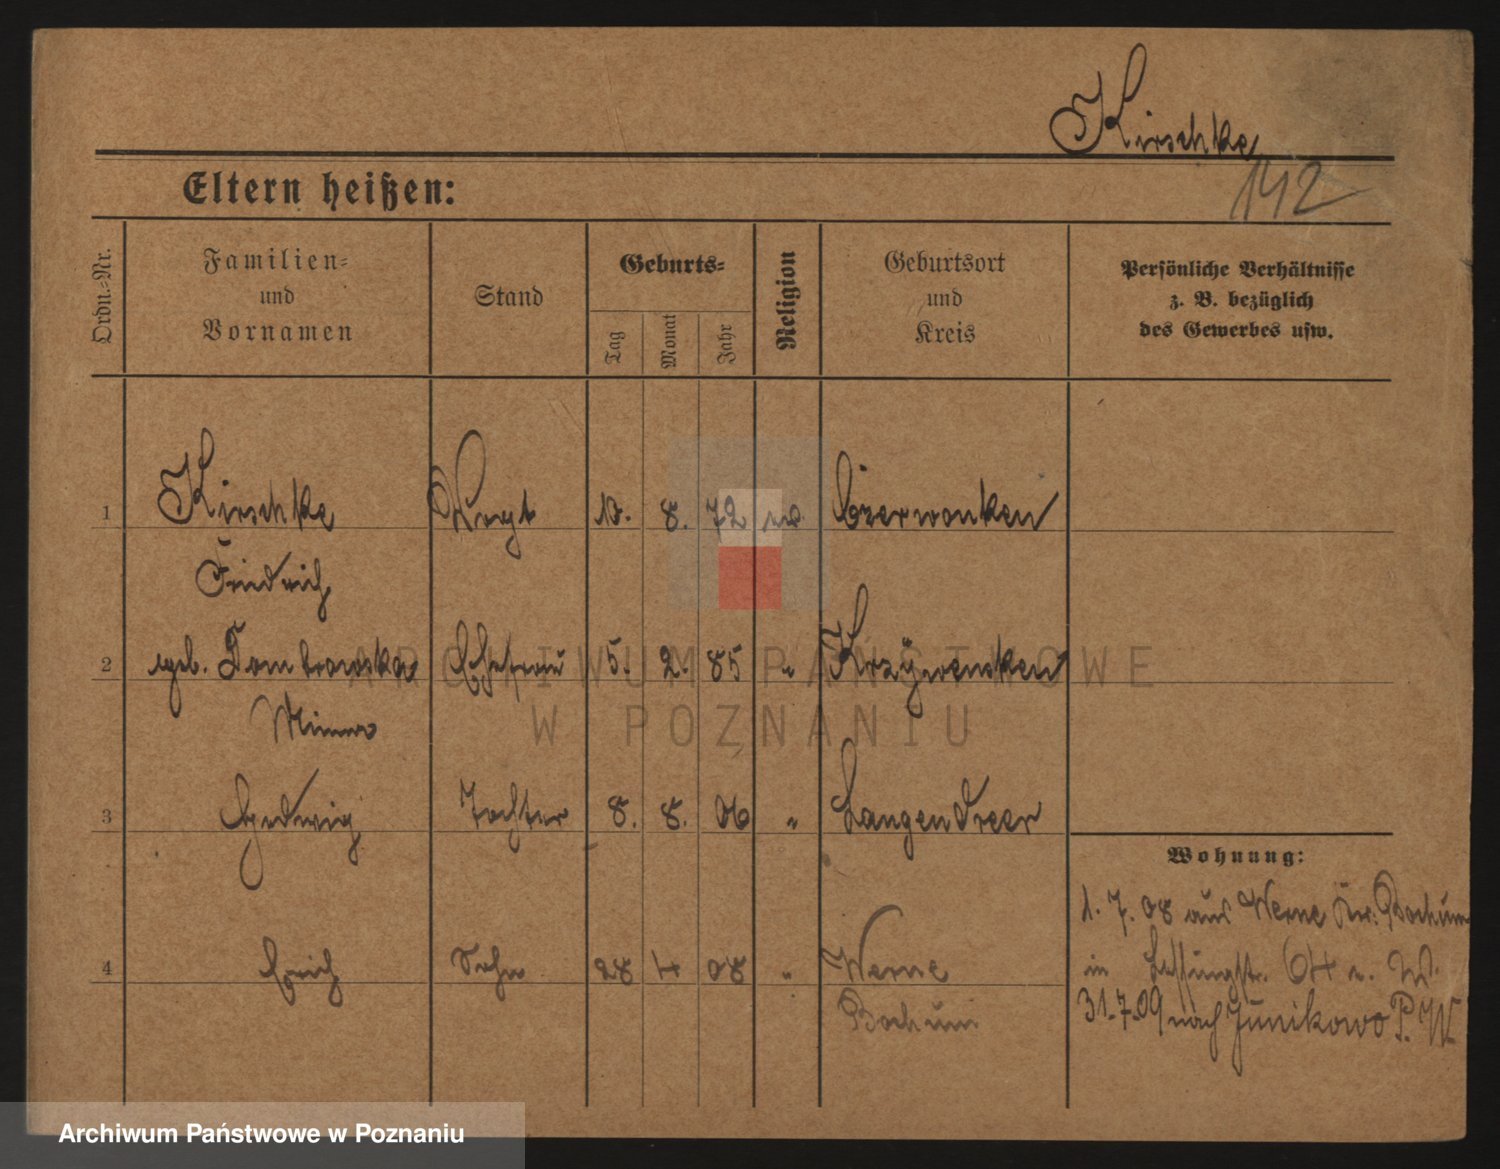 Kirschke
142
Eltern heißen:
Ordn.-Nr.
Familien-
und
Vornamen
Stand
Geburts-
Tag
Monat
Jahr
Religion
Geburtsort
und
Kreis
Persönliche Verhältnisse
z. B. bezüglich
des Gewerbes usw.
1 Kirschke Vogt 8. 72 Czerwonken
Friedrich
2 geb. Dombrowska Ehefrau 5. 2. 85 " Krzywensken
Minna
3 Hedwig Tochter 8. 8. 06 " Langendreer
Wohnung:
1. 7. 08 aus Werne Kr. Bochum
4 Erich Sohn 28 4 08 " Werne
in Lessingstr.
Bochum
31.7.09 nach Junikowo P. W.
ARCHIWUM PAŃSTWOWE
W POZNANIU
Archiwum Państwowe w Poznaniu